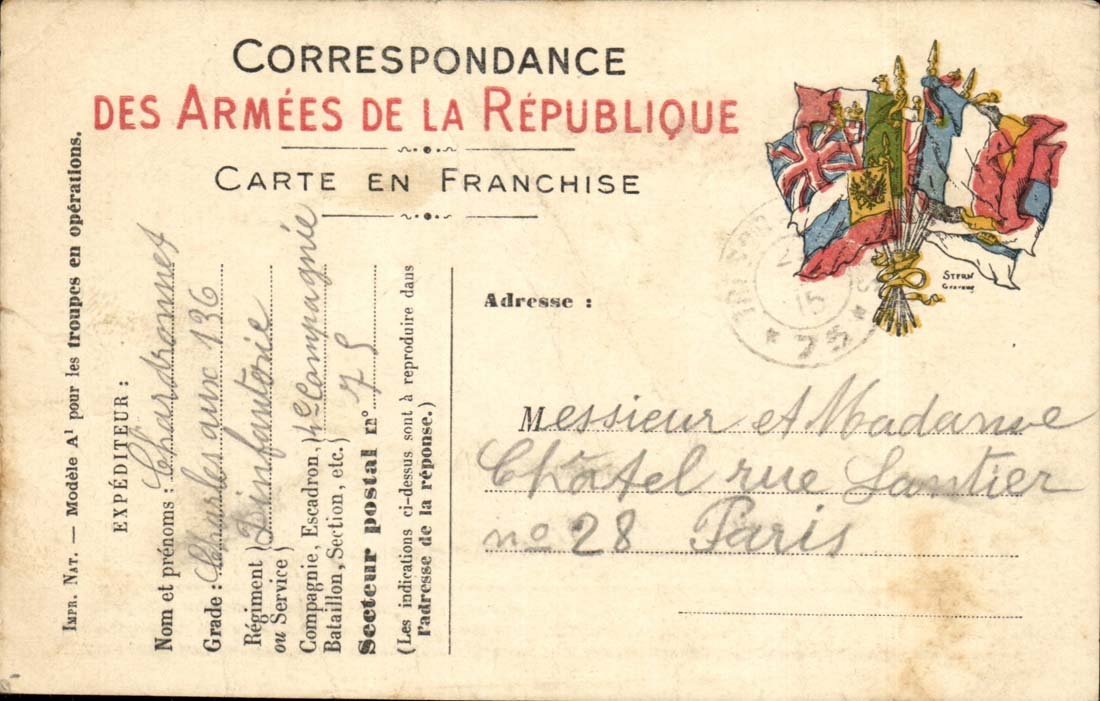 CORRESPONDANCE
DES ARMÉES DE LA RÉPUBLIQUE
CARTE EN FRANCHISE
IMPR. NAT. — Modèle A¹ pour les troupes en opérations.
EXPÉDITEUR :
Nom et prénoms : Chardronnet
Grade : Charles aux 136
Régiment
ou Service
} Dinfantorie
Compagnie, Escadron,
Bataillon, Section, etc.
} 4e Compagnie
Secteur postal n° 75
(Les indications ci-dessus sont à reproduire dans
l'adresse de la réponse.)
STERN
Graveur
15
* 75 *
Adresse :
Messieur et Madame
Châtel rue Santier
no 28 Paris